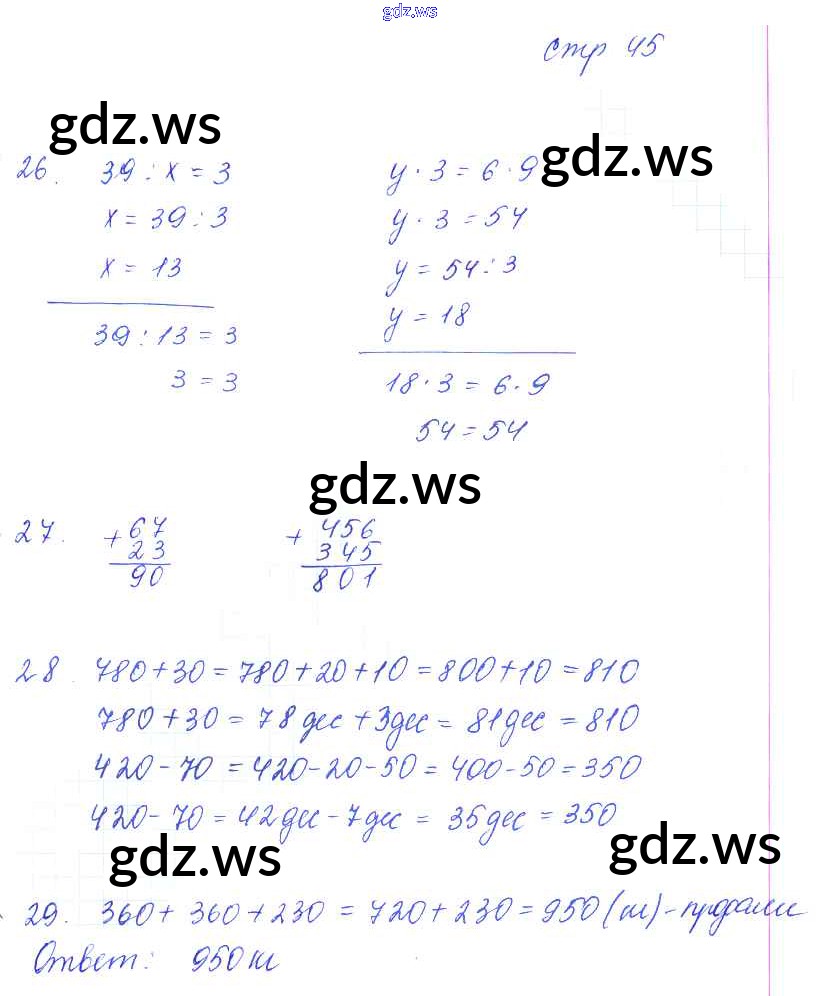 gdz.ws
стр 45
gdz.ws
gdz.ws
26. 39 : x = 3
x = 39 : 3
x = 13
39 : 13 = 3
3 = 3
y · 3 = 6 · 9
y · 3 = 54
y = 54 : 3
y = 18
18 · 3 = 6 · 9
54 = 54
gdz.ws
27. + 67
23
90
+ 456
345
801
28. 780 + 30 = 780 + 20 + 10 = 800 + 10 = 810
780 + 30 = 78 дес + 3 дес = 81 дес = 810
420 - 70 = 420 - 20 - 50 = 400 - 50 = 350
420 - 70 = 42 дес - 7 дес = 35 дес = 350
gdz.ws
gdz.ws
29. 360 + 360 + 230 = 720 + 230 = 950 (ш) - продали
Ответ: 950 ш